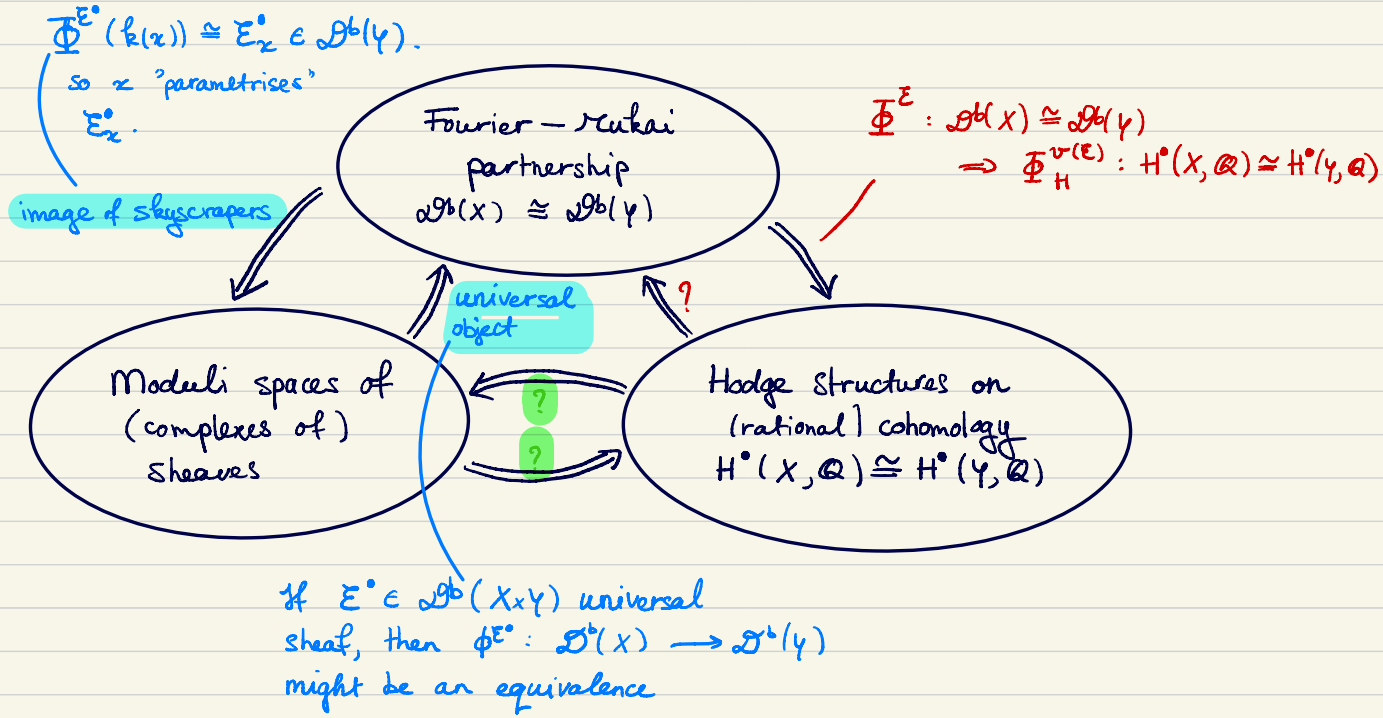 Φ^{ℰ•}(k(x)) ≅ ℰ•ₓ ∈ 𝒟ᵇ(Y).
so x "parametrises"
ℰ•ₓ.
image of skyscrapers
Fourier – Mukai
partnership
𝒟ᵇ(X) ≅ 𝒟ᵇ(Y)
Φ^ℰ : 𝒟ᵇ(X) ≅ 𝒟ᵇ(Y)
⟹ Φ_H^{v(ℰ)} : H•(X, ℚ) ≅ H•(Y, ℚ)
universal
object
?
Moduli spaces of
(complexes of)
sheaves
?
?
Hodge structures on
(rational) cohomology
H•(X, ℚ) ≅ H•(Y, ℚ)
If ℰ• ∈ 𝒟ᵇ(X×Y) universal
sheaf, then ϕ^{ℰ•} : 𝒟ᵇ(X) ⟶ 𝒟ᵇ(Y)
might be an equivalence